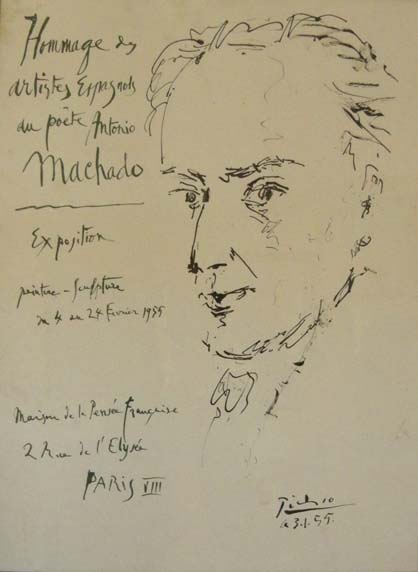 Hommage des
artistes Espagnols
au poète Antonio
Machado
Exposition
peinture - Sculpture
du 4 au 24 Février 1955
Maison de la Pensée Française
2 Rue de l'Elysée
PARIS VIII
Picasso
le 3.1.55.